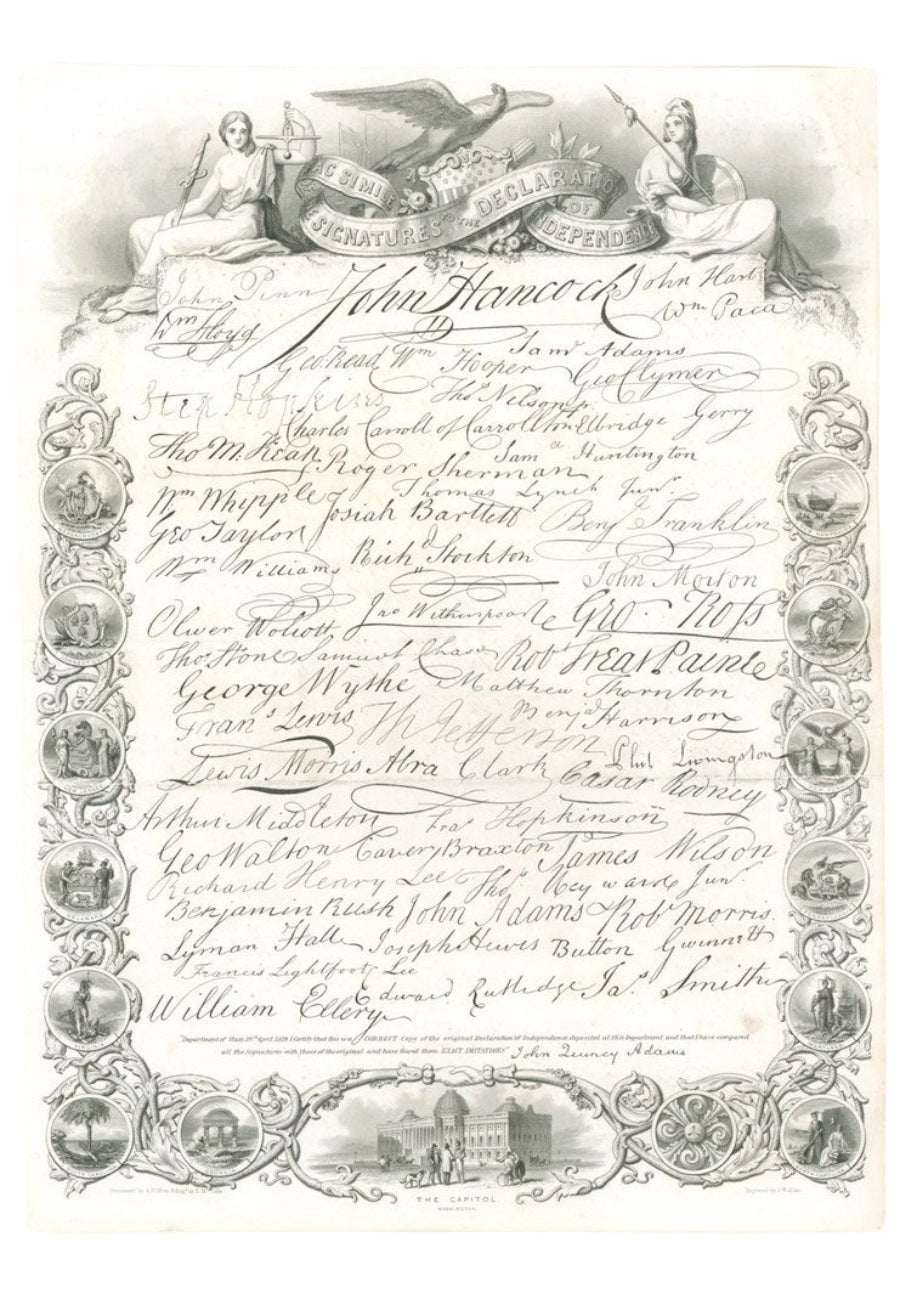 FAC SIMILE
OF THE
SIGNATURES TO THE DECLARATION
OF
INDEPENDENCE
John Penn John Hancock John Hart
Wm Floyd Wm Paca
Geo. Read Wm Hooper Saml Adams
Geo Clymer
Step Hopkins Thos Nelson jr.
Charles Carroll of Carrollton Elbridge Gerry
Tho M: Kean Roger Sherman Saml Huntington
Wm Whipple Josiah Bartlett Thomas Lynch Junr.
Geo Taylor Benj Franklin
Wm Williams Richd Stockton John Morton
Oliver Wolcott Jno Witherspoon Geo. Ross
Thos Stone Samuel Chase Robt Treat Paine
George Wythe Matthew Thornton
Frans Lewis Th Jefferson Benja Harrison
Lewis Morris Abra Clark Phil Livingston
Cæsar Rodney
Arthur Middleton Fras Hopkinson
Geo Walton Carter Braxton James Wilson
Richard Henry Lee Thos. Heyward Junr.
Benjamin Rush John Adams Robt Morris.
Lyman Hall Joseph Hewes Button Gwinnett
Francis Lightfoot Lee
William Ellery Edward Rutledge Jas. Smith
"Department of State 29th April, 1819. I Certify that this is a CORRECT Copy of the original Declaration of Independence deposited at this Department and that I have compared
all the Signatures with those of the original and have found them EXACT IMITATIONS" John Quincy Adams
DELAWARE
THE CAPITOL.
WASHINGTON.
Engraved by